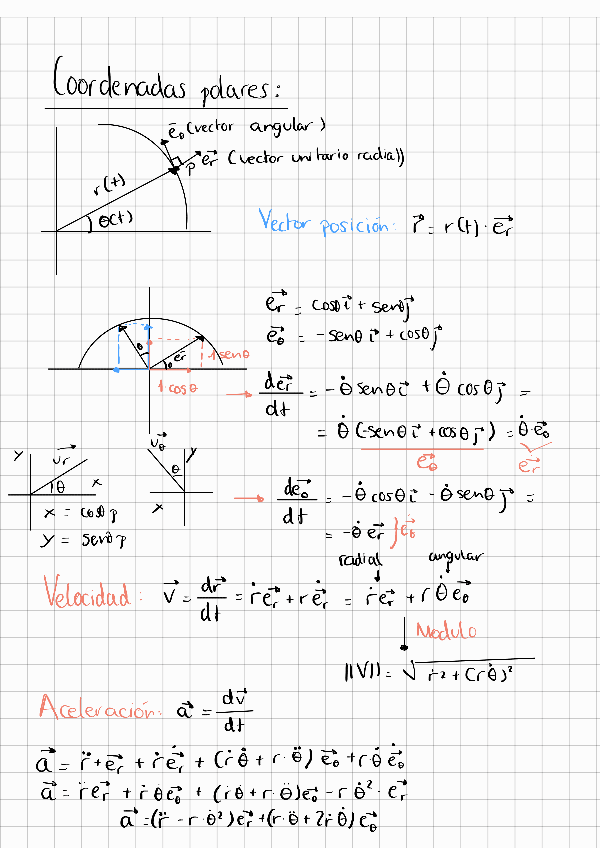 Coordenadas polares:
e⃗θ (vector angular)
P e⃗r (vector unitario radial)
r(t)
θ(t)
Vector posición: r⃗ = r(t) · e⃗r
e⃗r = cosθ i⃗ + senθ j⃗
e⃗θ = -senθ i⃗ + cosθ j⃗
θ θ e⃗r 1 senθ
1 cosθ
→ de⃗r/dt = -θ̇ senθ i⃗ + θ̇ cosθ j⃗ =
= θ̇ (-senθ i⃗ + cosθ j⃗) = θ̇ e⃗θ
e⃗θ ė⃗r
y v⃗r θ x
v⃗θ y θ x
x = cosθ p
y = senθ p
→ de⃗θ/dt = -θ̇ cosθ i⃗ - θ̇ senθ j⃗ =
= -θ̇ e⃗r } ė⃗θ
radial angular
Velocidad: v⃗ = dr⃗/dt = ṙ e⃗r + r ė⃗r = ṙ e⃗r + r θ̇ e⃗θ
Modulo
||V|| = √ṙ² + (r θ̇)²
Aceleración: a⃗ = dv⃗/dt
a⃗ = r̈ + e⃗r + ṙ ė⃗r + (ṙ θ̇ + r · θ̈) e⃗θ + r θ̇ ė⃗θ
a⃗ = r̈ e⃗r + ṙ θ̇ e⃗θ + (ṙ θ̇ + r · θ̈) e⃗θ - r θ̇² · e⃗r
a⃗ = (r̈ - r · θ̇²) e⃗r + (r · θ̈ + 2ṙ θ̇) e⃗θ